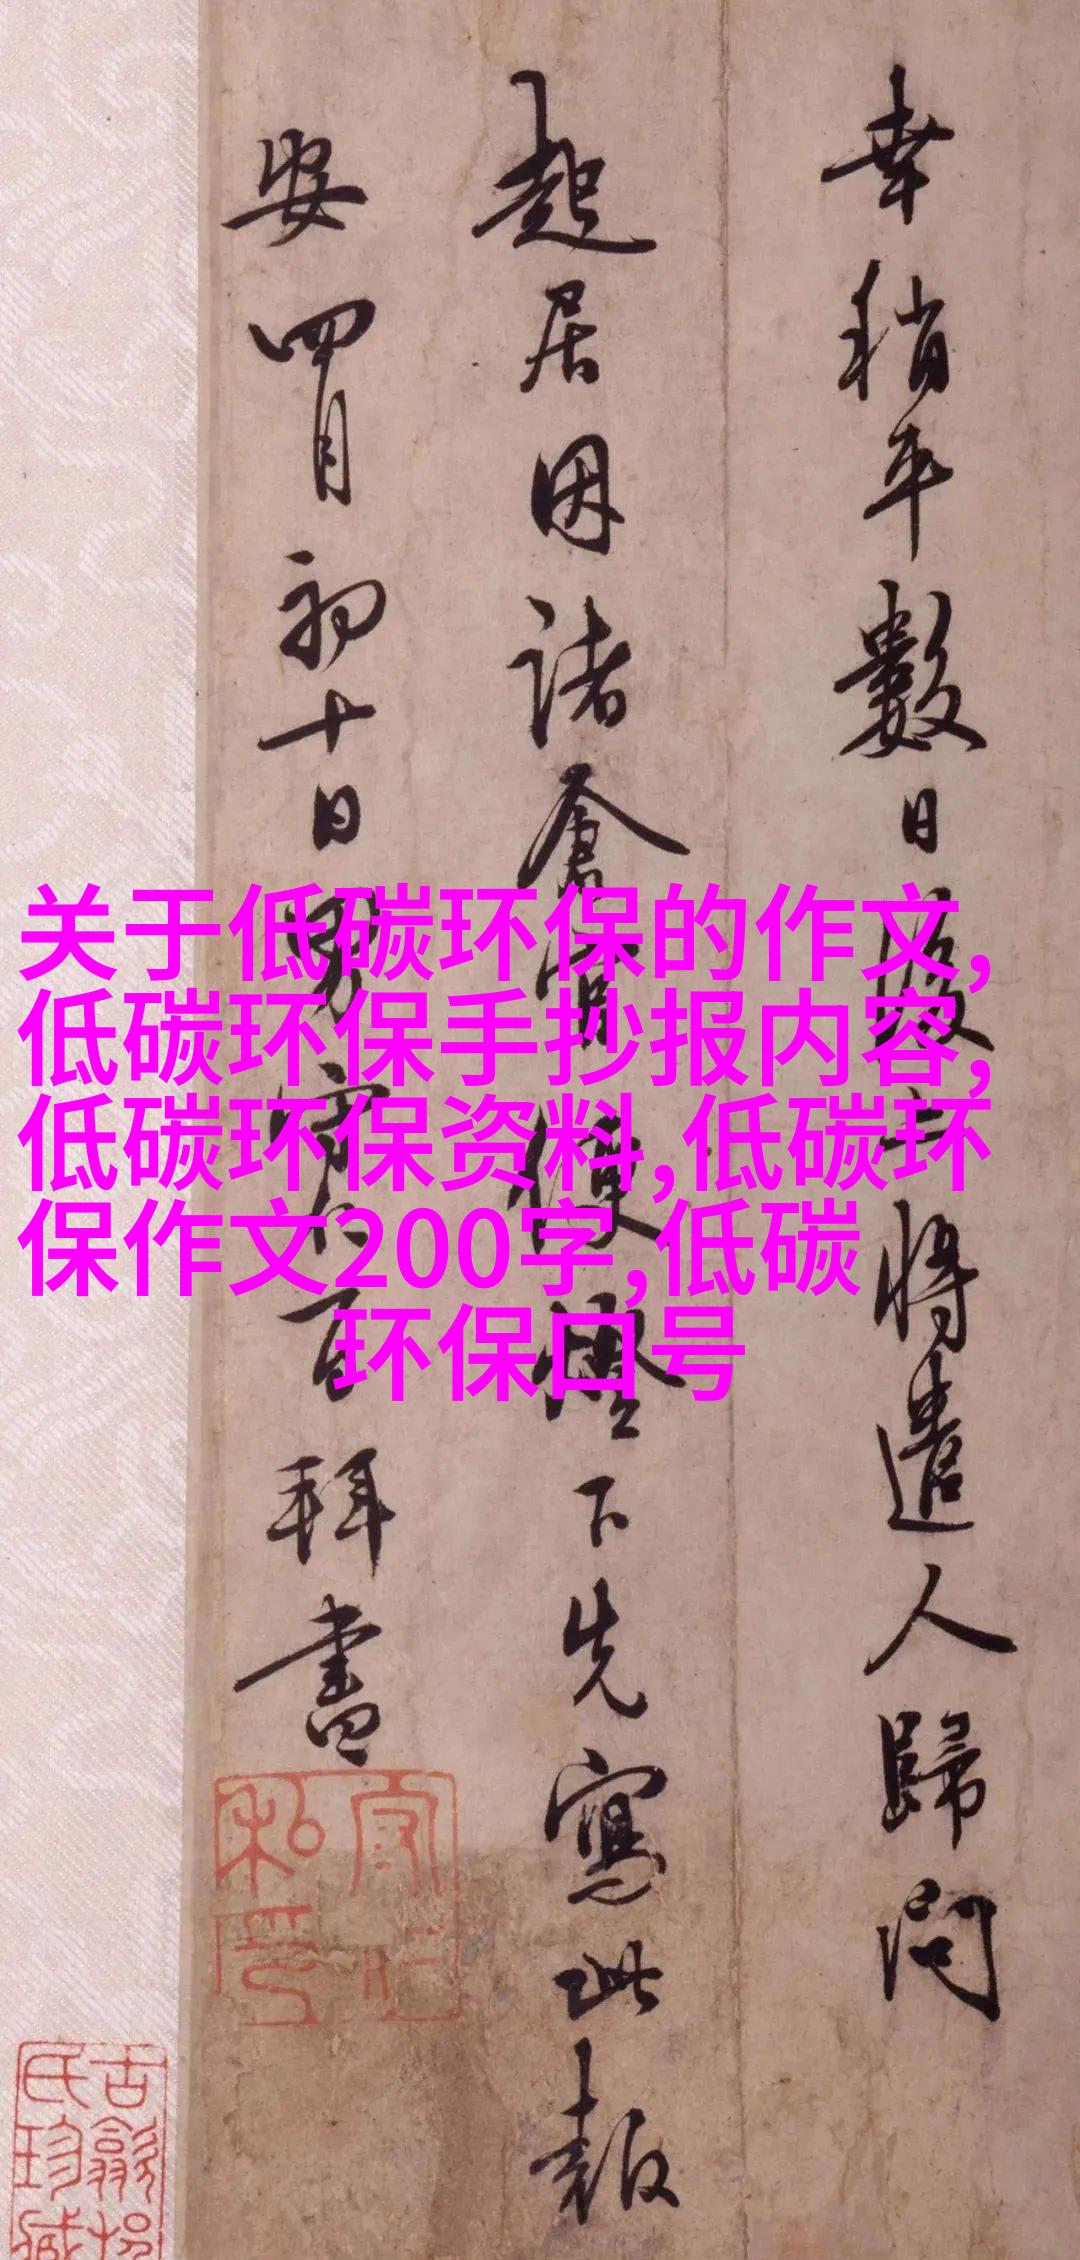 幸稍平數日後
將遣人歸問
起居因諸倉官
燈下先寫此報
安四月初十日男守仁百拜書
关于低碳环保的作文,
低碳环保手抄报内容,
低碳环保资料,低碳环
保作文200字,低碳
环保口号